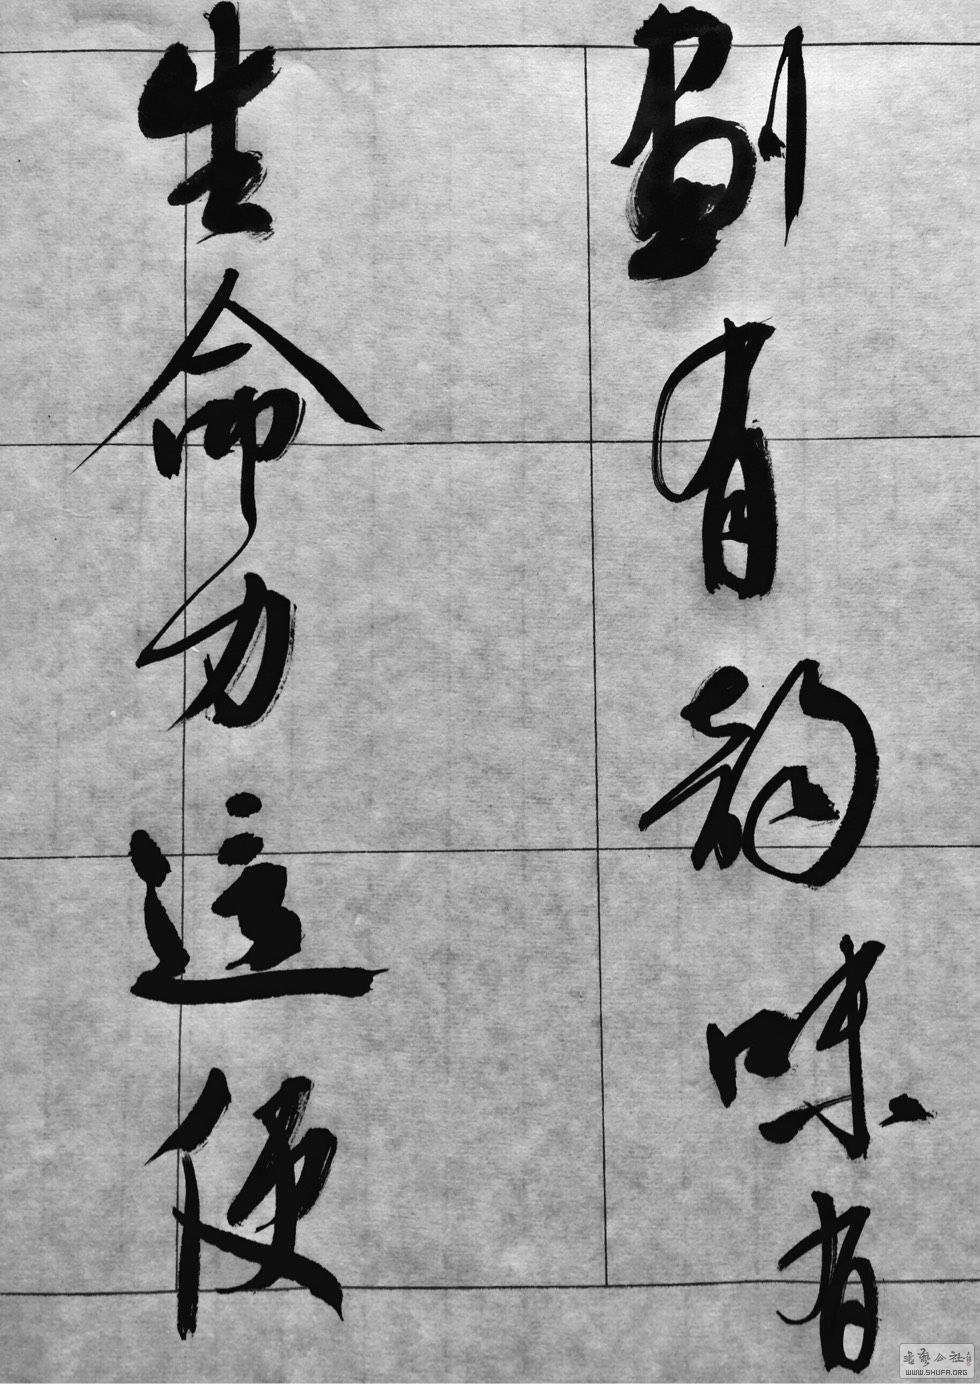 劃有韵味有
生命力這便
书艺公社
WWW.SHUFA.ORG